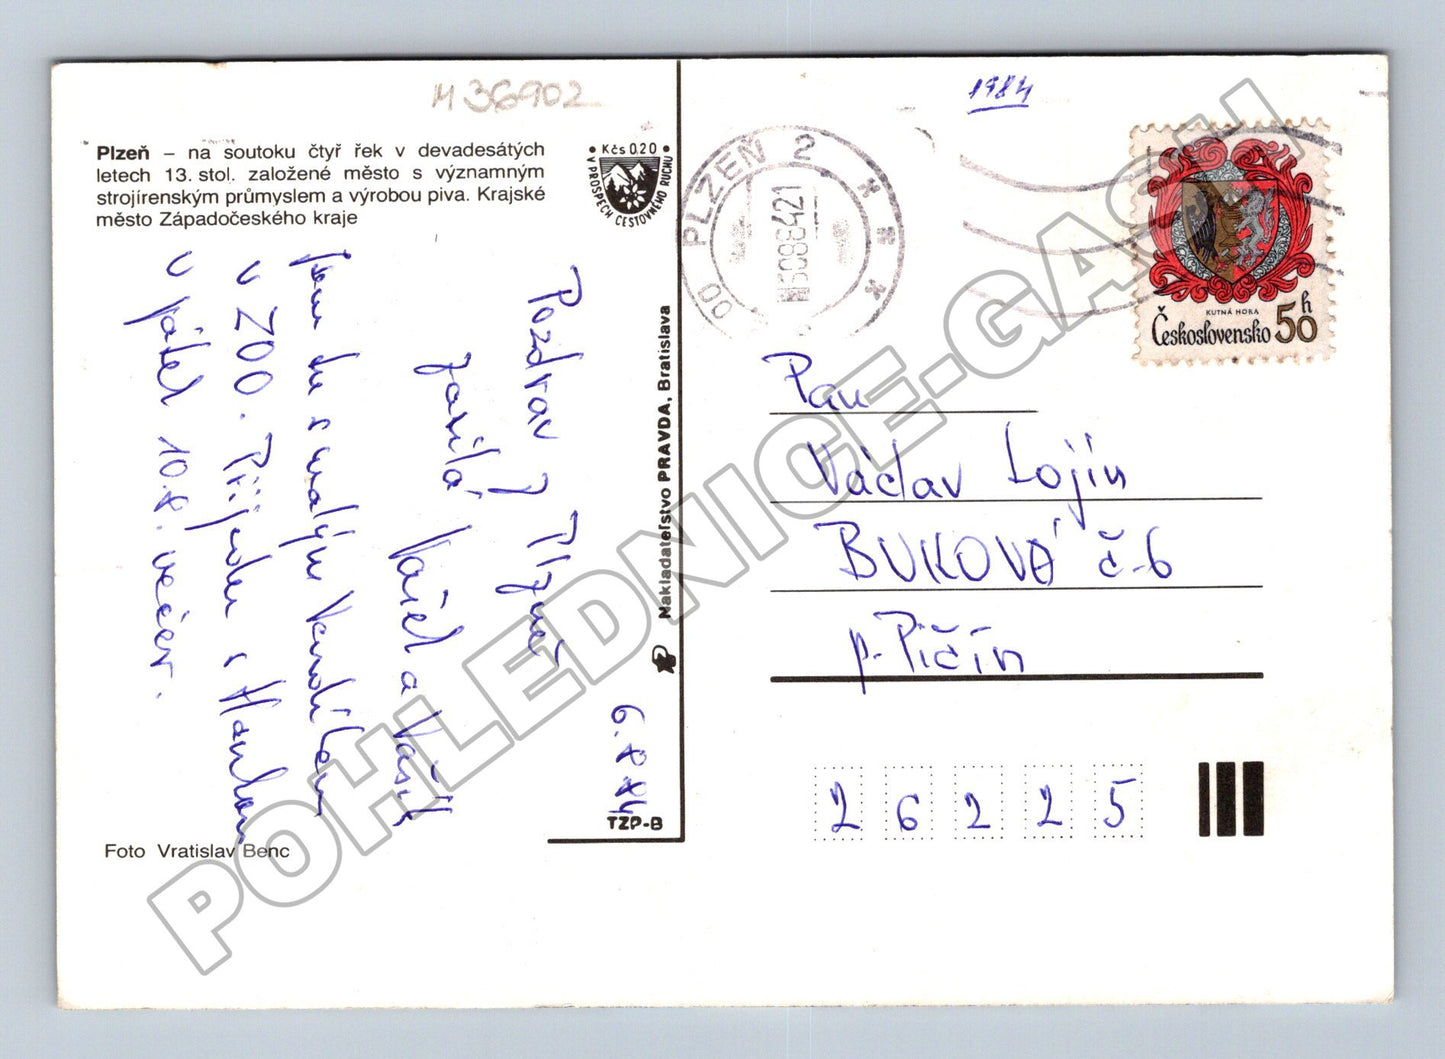 M 36902
1984
Plzeň – na soutoku čtyř řek v devadesátých
letech 13. stol. založené město s významným
strojírenským průmyslem a výrobou piva. Krajské
město Západočeského kraje
• Kčs 0.20 •
V PROSPĚCH CESTOVNÍHO RUCHU
00 PLZEŇ 2
KUTNÁ HORA
Československo 50 h
Pozdrav z Plzně
zasílá
Vašek a Vašík
Jsem tu s malým
v ZOO. Přijedu s
v pátek 10.8. večer.
6. 8. 84
Nakladateľstvo PRAVDA, Bratislava
TZP-B
Foto Vratislav Benc
Pan
Václav Lojín
BUKOVÁ č. 6
p. Pičín
26225
POHLEDNICE-GASH